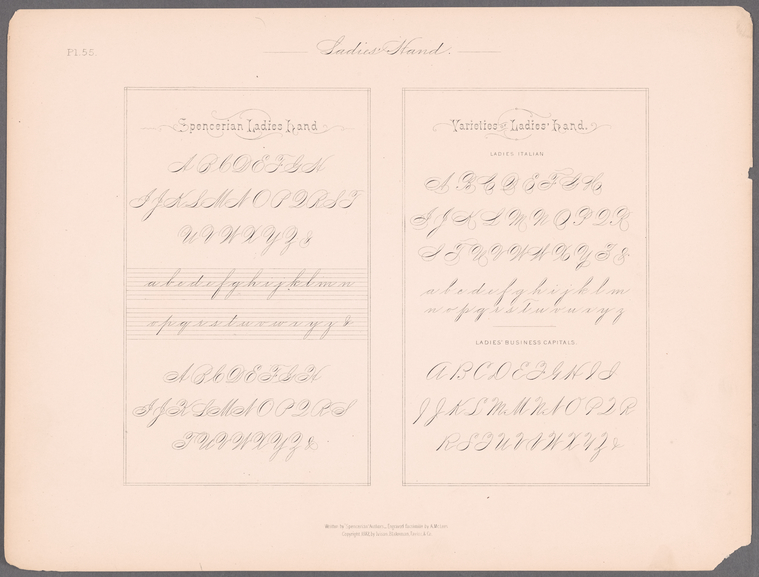 Pl. 55.
Ladies' Hand.
Spencerian Ladies Hand
A B C D E F G H
I J K L M N O P Q R S T
U V W X Y Z &
a b c d e f g h i j k l m n
o p q r s t u v w x y z &
A B C D E F G H
I J K L M N O P Q R S
T U V W X Y Z &
Varieties of Ladies' Hand.
LADIES' ITALIAN
A B C D E F G H
I J K L M N O P Q R
S T U V W X Y Z &
a b c d e f g h i j k l m
n o p q r s t u v w x y z
LADIES' BUSINESS CAPITALS.
A B C D E F G H I J
I J K L M M N N O P Q R
R S T U V V W X Y Z &
Written by Spencerian Authors. Engraved
Copyright by Ivison, Blakeman, Taylor & Co.